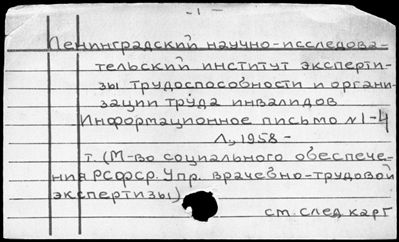 - 1 -
Ленинградский научно-исследова-
тельский институт эксперти-
зы трудоспособности и органи-
зации труда инвалидов
Информационное письмо №1-4
Л., 1958 -
т. (М-во социального обеспече-
ния РСФСР. Упр. врачебно-трудовой
экспертизы)
см. след карт